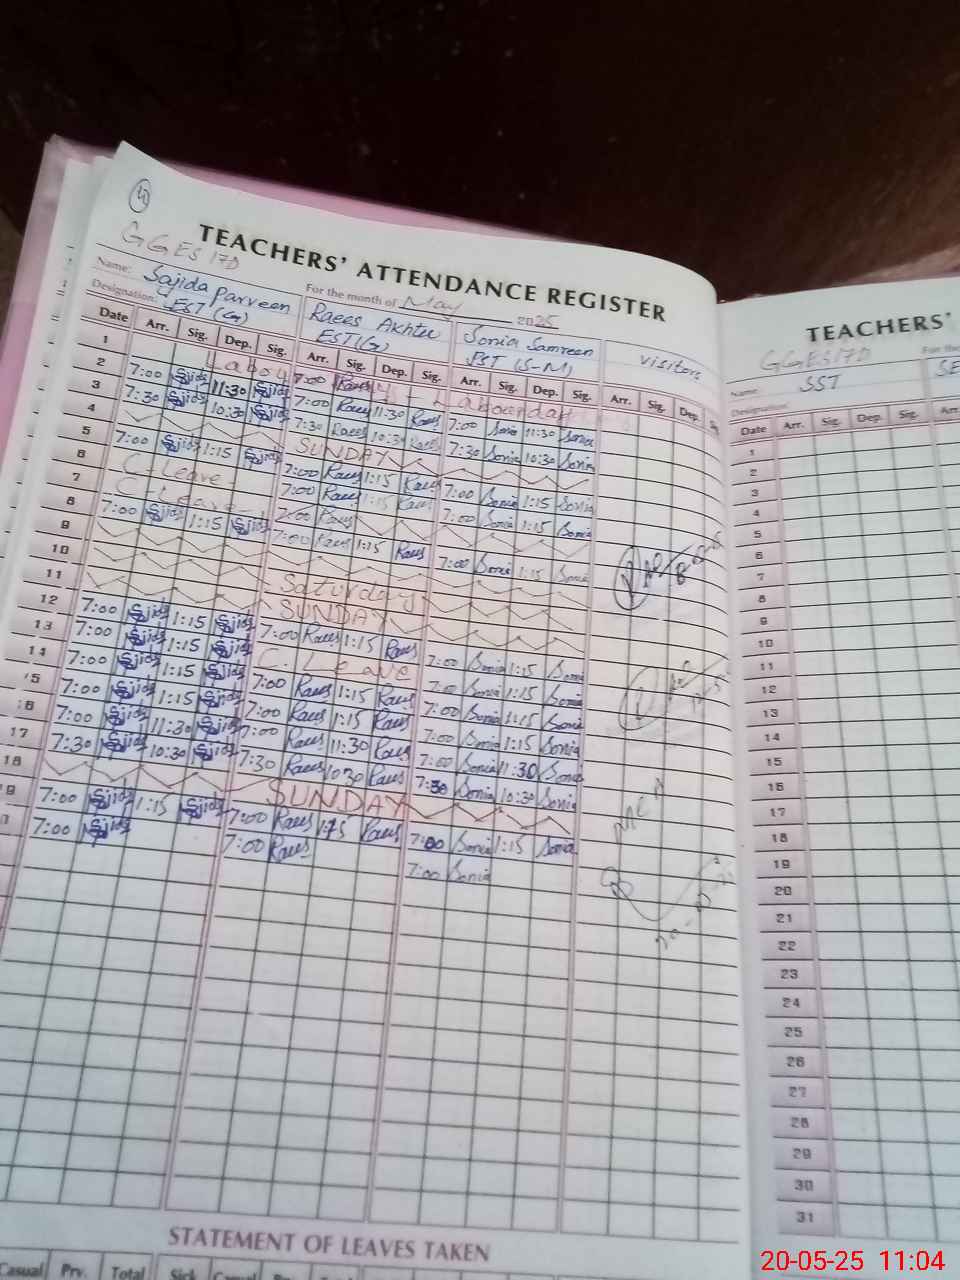 4
GGES 17D
TEACHERS' ATTENDANCE REGISTER
Name: Sajida Parveen
For the month of May 2025
Designation: EST (G)
Raees Akhter
EST(G)
Sonia Samreen
PST (S-M)
Visitors
Date Arr. Sig. Dep. Sig. Arr. Sig. Dep. Sig. Arr. Sig. Dep. Sig. Arr. Sig. Dep. Sig.
1 Labour day - Labour day
2 7:00 Sajida 11:30 Sajida 7:00 Raees 11:30 Raees 7:00 Sonia 11:30 Sonia
3 7:30 Sajida 10:30 Sajida 7:30 Raees 10:30 Raees 7:30 Sonia 10:30 Sonia
4 SUNDAY
5 7:00 Sajida 1:15 Sajida 7:00 Raees 1:15 Raees 7:00 Sonia 1:15 Sonia
6 C-Leave 7:00 Raees 1:15 Raees 7:00 Sonia 1:15 Sonia
7 C-Leave 7:00 Raees
8 7:00 Sajida 1:15 Sajida 7:00 Raees 1:15 Raees 7:00 Sonia 1:15 Sonia
9
10 Saturday
11 SUNDAY
12 7:00 Sajida 1:15 Sajida 7:00 Raees 1:15 Raees 7:00 Sonia 1:15 Sonia
13 7:00 Sajida 1:15 Sajida C. Leave 7:00 Sonia 1:15 Sonia
14 7:00 Sajida 1:15 Sajida 7:00 Raees 1:15 Raees 7:00 Sonia 1:15 Sonia
15 7:00 Sajida 1:15 Sajida 7:00 Raees 1:15 Raees 7:00 Sonia 1:15 Sonia
16 7:00 Sajida 11:30 Sajida 7:00 Raees 11:30 Raees 7:00 Sonia 11:30 Sonia
17 7:30 Sajida 10:30 Sajida 7:30 Raees 10:30 Raees 7:30 Sonia 10:30 Sonia
18 SUNDAY
19 7:00 Sajida 1:15 Sajida 7:00 Raees 1:15 Raees 7:00 Sonia 1:15 Sonia
7:00 Sajida 7:00 Raees 7:00 Sonia
MEA
STATEMENT OF LEAVES TAKEN
Casual Prv. Total Sick Casual Prv. Total
TEACHERS'
GGES17D
For the
Name: SST
SE
Designation:
Date Arr. Sig. Dep. Sig. Arr.
1
2
3
4
5
6
7
8
9
10
11
12
13
14
15
16
17
18
19
20
21
22
23
24
25
26
27
28
29
30
31
20-05-25 11:04